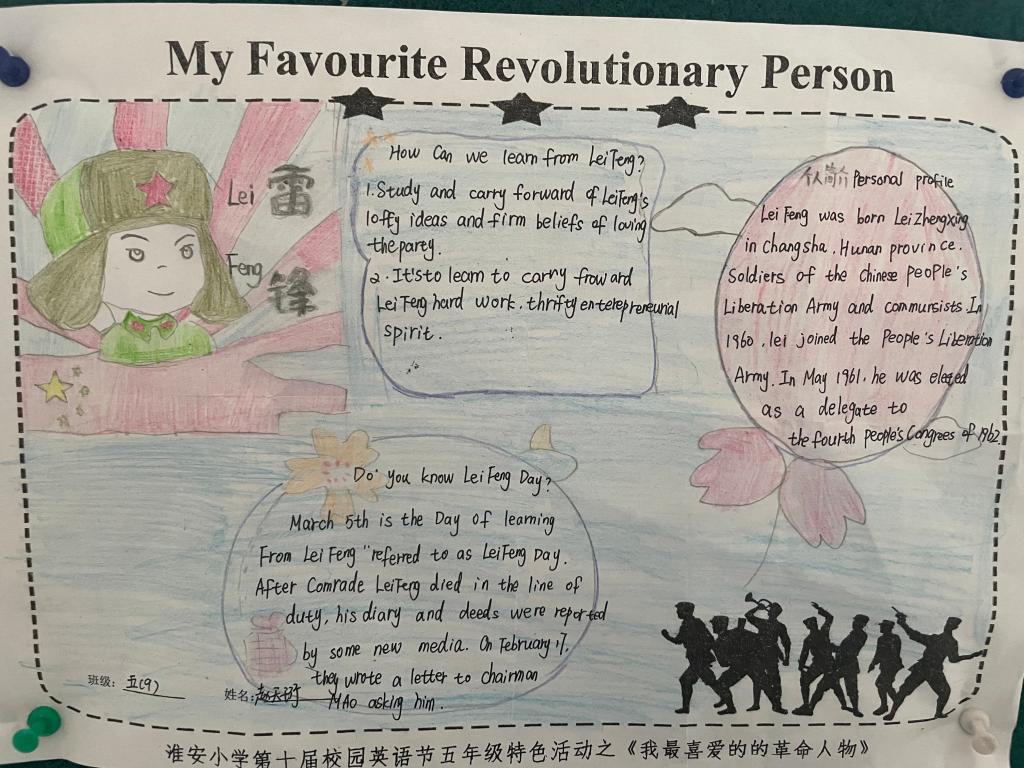 My Favourite Revolutionary Person
Lei 雷
Feng 锋
How Can we learn from LeiFeng?
1. Study and carry forward of LeiFeng's
loffy ideas and firm beliefs of loving
the party.
2. It'sto learn to carry froward
LeiFeng hard work. thrifty enterepreneurial
spirit.
个人简介 Personal profile
Lei Feng was born Lei Zhengxing
in Changsha, Hunan province.
Soldiers of the chinese people's
Liberation Army and communsists. In
1960, lei joined the People's Liberation
Army. In May 1961, he was eleted
as a delegate to
the fourth people's Congrees of 1962
Do you know Lei Feng Day?
March 5th is the Day of learning
From Lei Feng "referred to as LeiFeng Day.
After Comrade LeiFeng died in the line of
duty, his diary and deeds were reported
by some new media. On February 17,
they wrote a letter to chairman
MAo asking him.
班级: 五(9)
姓名:
淮安小学第十届校园英语节五年级特色活动之《我最喜爱的的革命人物》